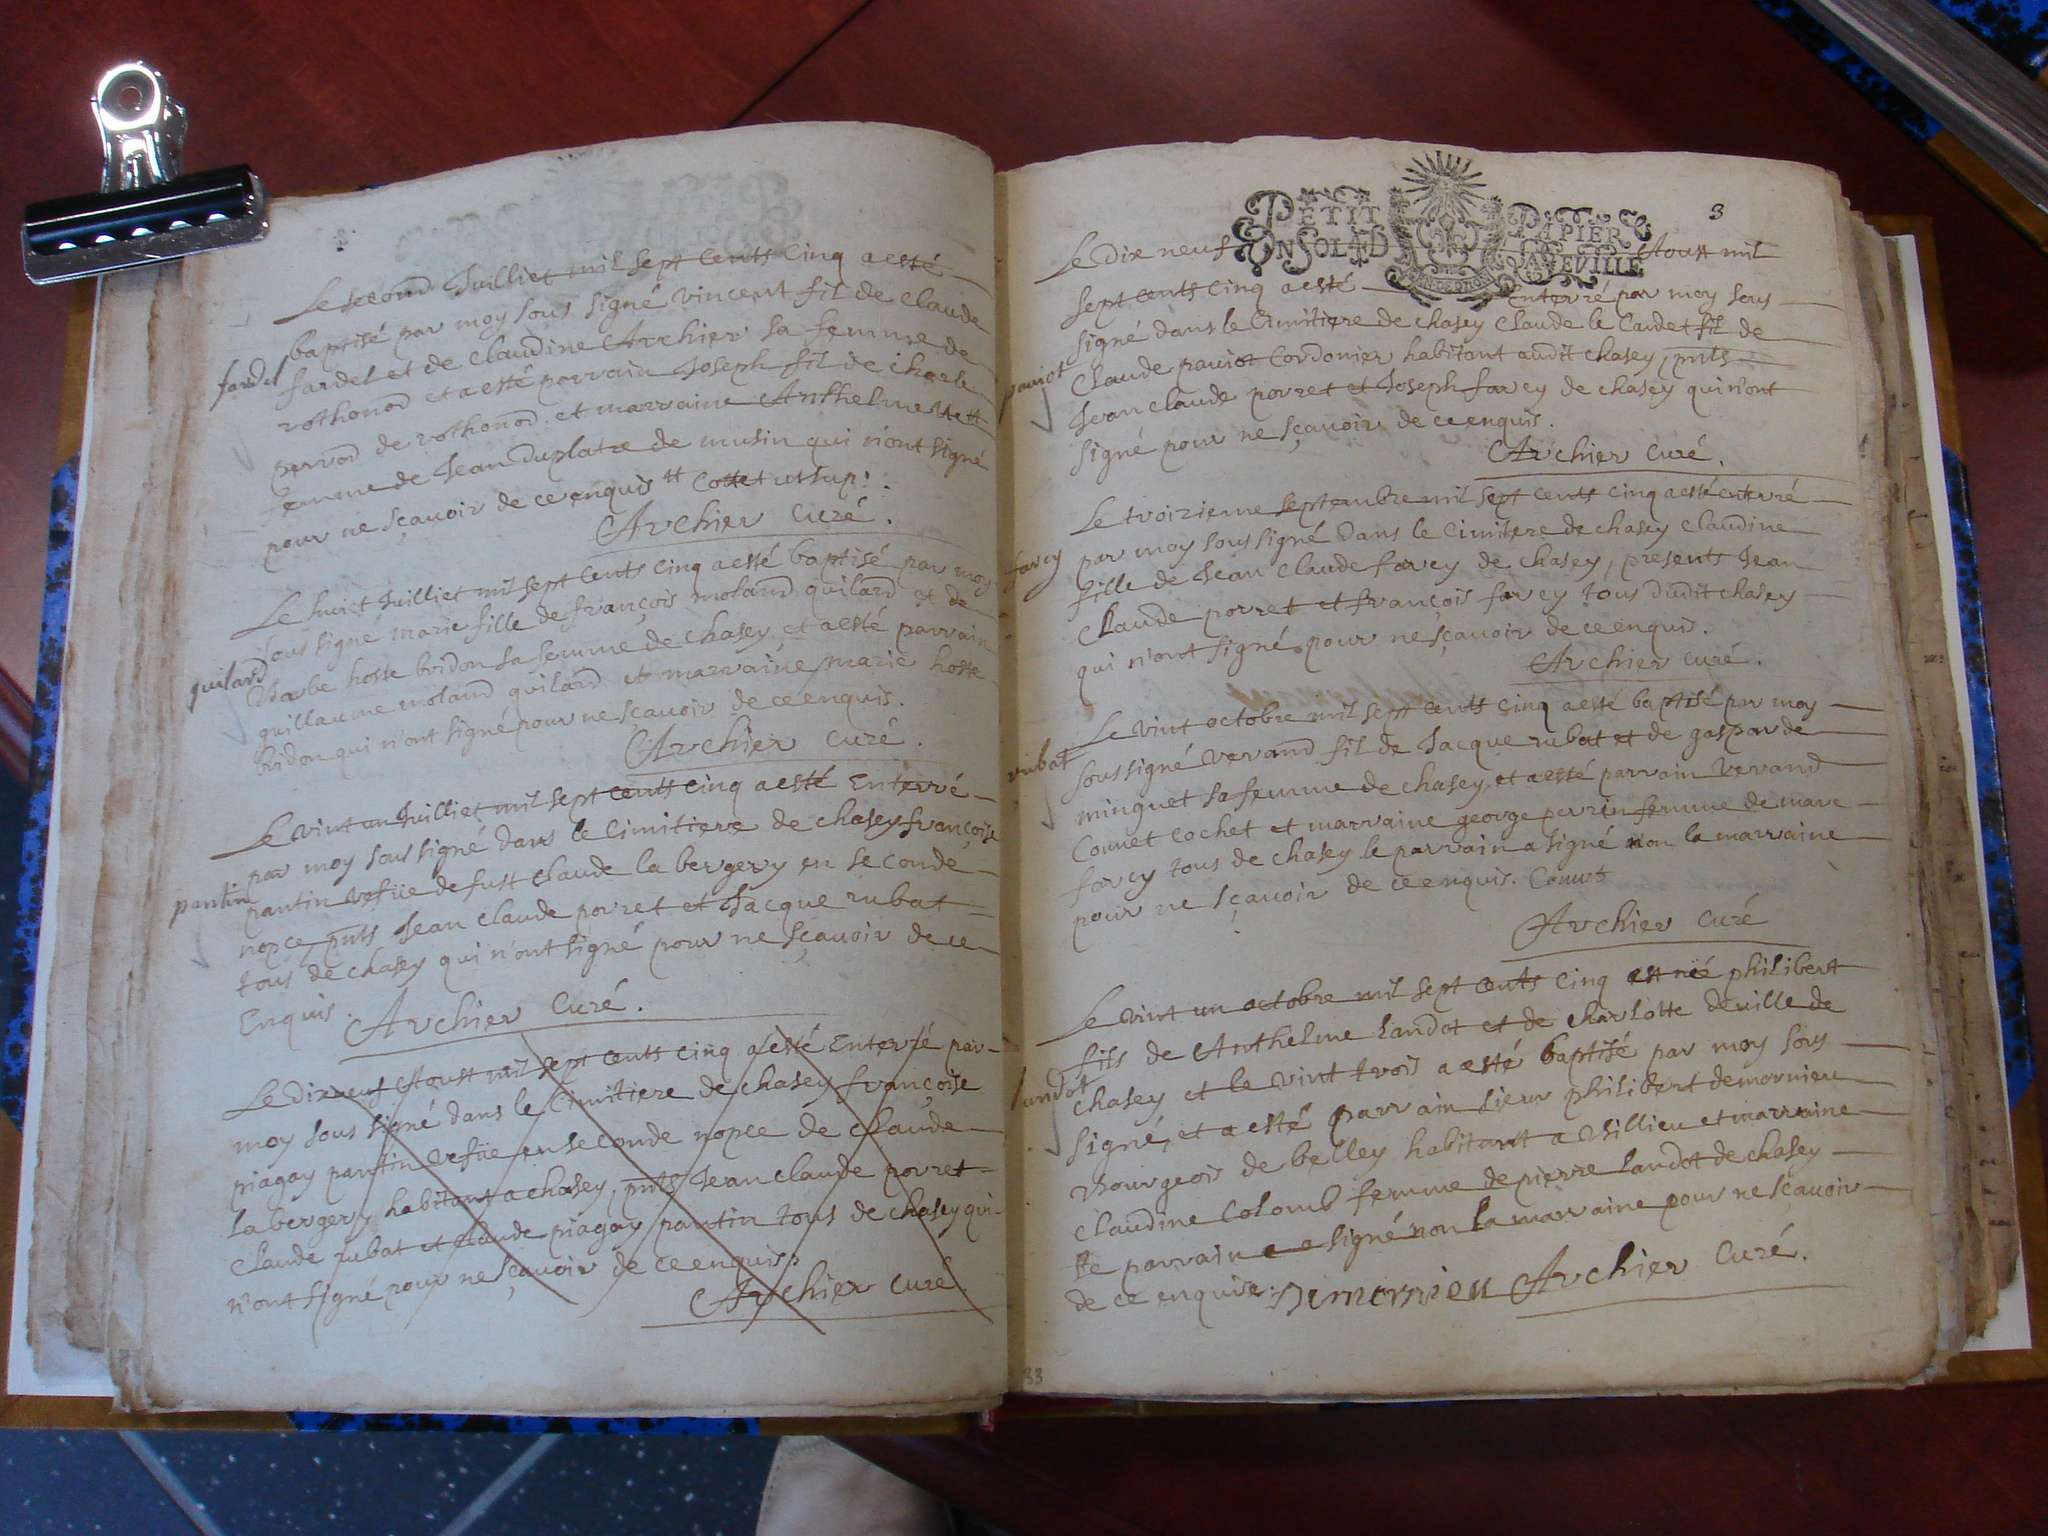 Le second Juilliet mil sept cents cinq a esté
baptisé par moy sous signé vincent fil de claude
fardel
fardel et de claudine Archier sa femme de
rothonod et a esté parrain Joseph fil de charle
perrod de rothonod. et marraine Anthelme tt
femme de Jean Duplatre de musin qui n'ont signé
pour ne sçauoir de ce enquis tt Cottet ut sup:
Archier Curé.
Le huict Juilliet mil sept cents cinq a esté baptisé par moy
sous signé marie fille de françois moland quilard et de
quilard
Barbe hoste bridon sa femme de chasey et a esté parrain
guillaume moland quilard et marraine marie hoste
bridon qui n'ont signé pour ne sçauoir de ce enquis.
Archier Curé.
Le vint un Juilliet mil sept cents cinq a esté Enterré
par moy sous signé dans le Cimitiere de chasey françoise
pantin
pantin vefüe de fust claude la bergery en seconde
nopce, pnts Jean claude porret et Jacque rubat
tous de chasey qui n'ont signé pour ne sçauoir de ce
Enquis.
Archier Curé.
Le dix neuf Aoust mil sept cents cinq a esté Enterré par
moy sous signé dans le Cimitiere de chasey françoise
piagay pantin vefüe en seconde nopce de claude
la bergery habitant a chasey, pnts Jean claude porret
claude rubat et claude piagay pantin tous de chasey qui
n'ont signé pour ne sçauoir de ce enquis
Archier Curé.
3
PETIT PAPIER
UN SOL 4 D LA FEUILLE
Le dix neuf Aoust mil
sept cents cinq a esté Enterré par moy sous
signé dans le Cimitiere de chasey claude le Cardet fil de
pauiot
Claude pauiot Cordonier habitant audit chasey, pnts
Jean claude porret et Joseph farcy de chasey qui n'ont
signé pour ne sçauoir de ce enquis.
Archier Curé.
Le troizieme septembre mil sept cents cinq a esté enterré
farcy
par moy sous signé dans le Cimitere de chasey Claudine
fille de Jean Claude farcy de chasey, presents Jean
Claude porret et françois farcy tous dudit chasey
qui n'ont signé pour ne sçauoir de ce enquis.
Archier Curé.
Le vint octobre mil sept cents cinq a esté baptisé par moy
rubat
sous signé verand fil de Jacque rubat et de gasparde
minguet sa femme de chasey, et a esté parrain verand
Couuet Cochet et marraine george perrin femme de marc
farcy tous de chasey le parrain a signé non la marraine
pour ne sçauoir de ce enquis. Couuet
Archier Curé
Le vint un octobre mil sept cents cinq est né philibert
fils de Anthelme landot et de charlotte deuille de
landot
chasey et le vint trois a esté baptisé par moy sous
signé, et a esté parrain sieur philibert demornieu
Bourgeois de belley habitant a Billieu et marraine
Claudine Colomb femme de pierre landot de chasey
le parrain a signé non la marraine pour ne sçauoir
de ce enquise. Demornieu Archier Curé.
33